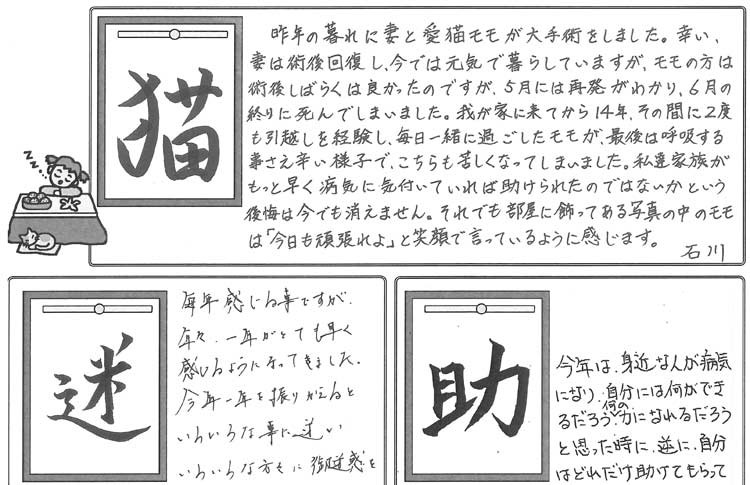 猫
昨年の暮れに妻と愛猫モモが大手術をしました。幸い、
妻は術後回復し、今では元気で暮らしていますが、モモの方は
術後しばらくは良かったのですが、5月には再発がわかり、6月の
終りに死んでしまいました。我が家に来てから14年、その間に2度
も引越しを経験し、毎日一緒に過ごしたモモが、最後は呼吸する
事さえ辛い様子で、こちらも苦しくなってしまいました。私達家族が
もっと早く病気に気付いていれば助けられたのではないかという
後悔は今でも消えません。それでも部屋に飾ってある写真の中のモモ
は「今日も頑張れよ」と笑顔で言っているように感じます。
石川
zzz
迷
毎年感じる事ですが、
年々、一年がとても早く
感じるようになってきました。
今年一年を振りかえると
いろいろな事に迷い
いろいろな方々に御迷惑を
助
今年は、身近な人が病気
になり、自分には何ができ
るだろう、何の力になれるだろう
と思った時に、逆に、自分
はどれだけ助けてもらって